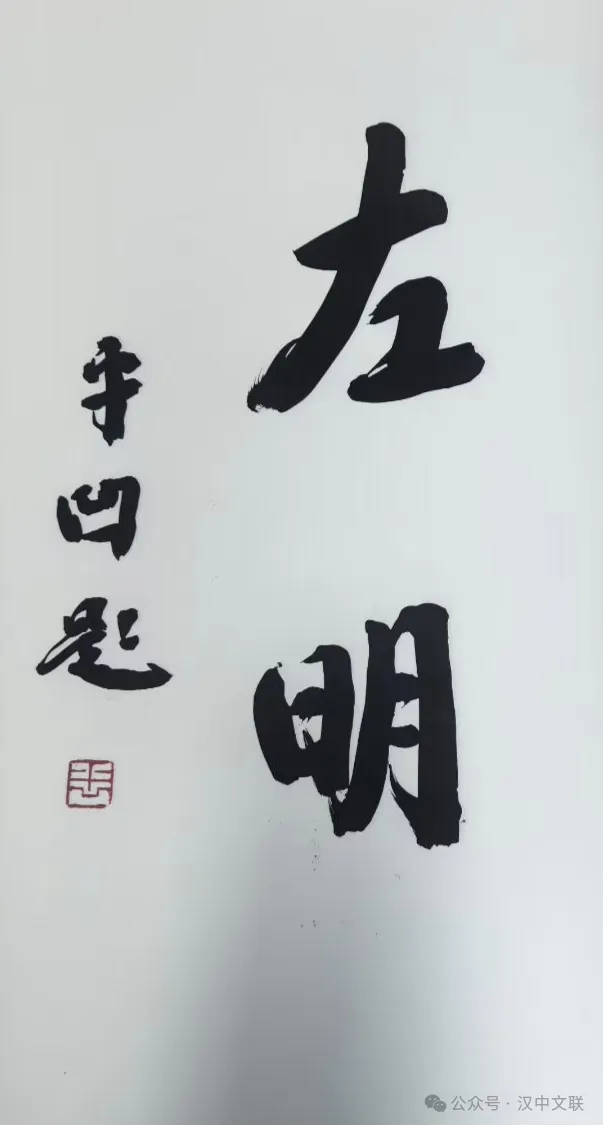 左明
平凹题
公众号·汉中文联